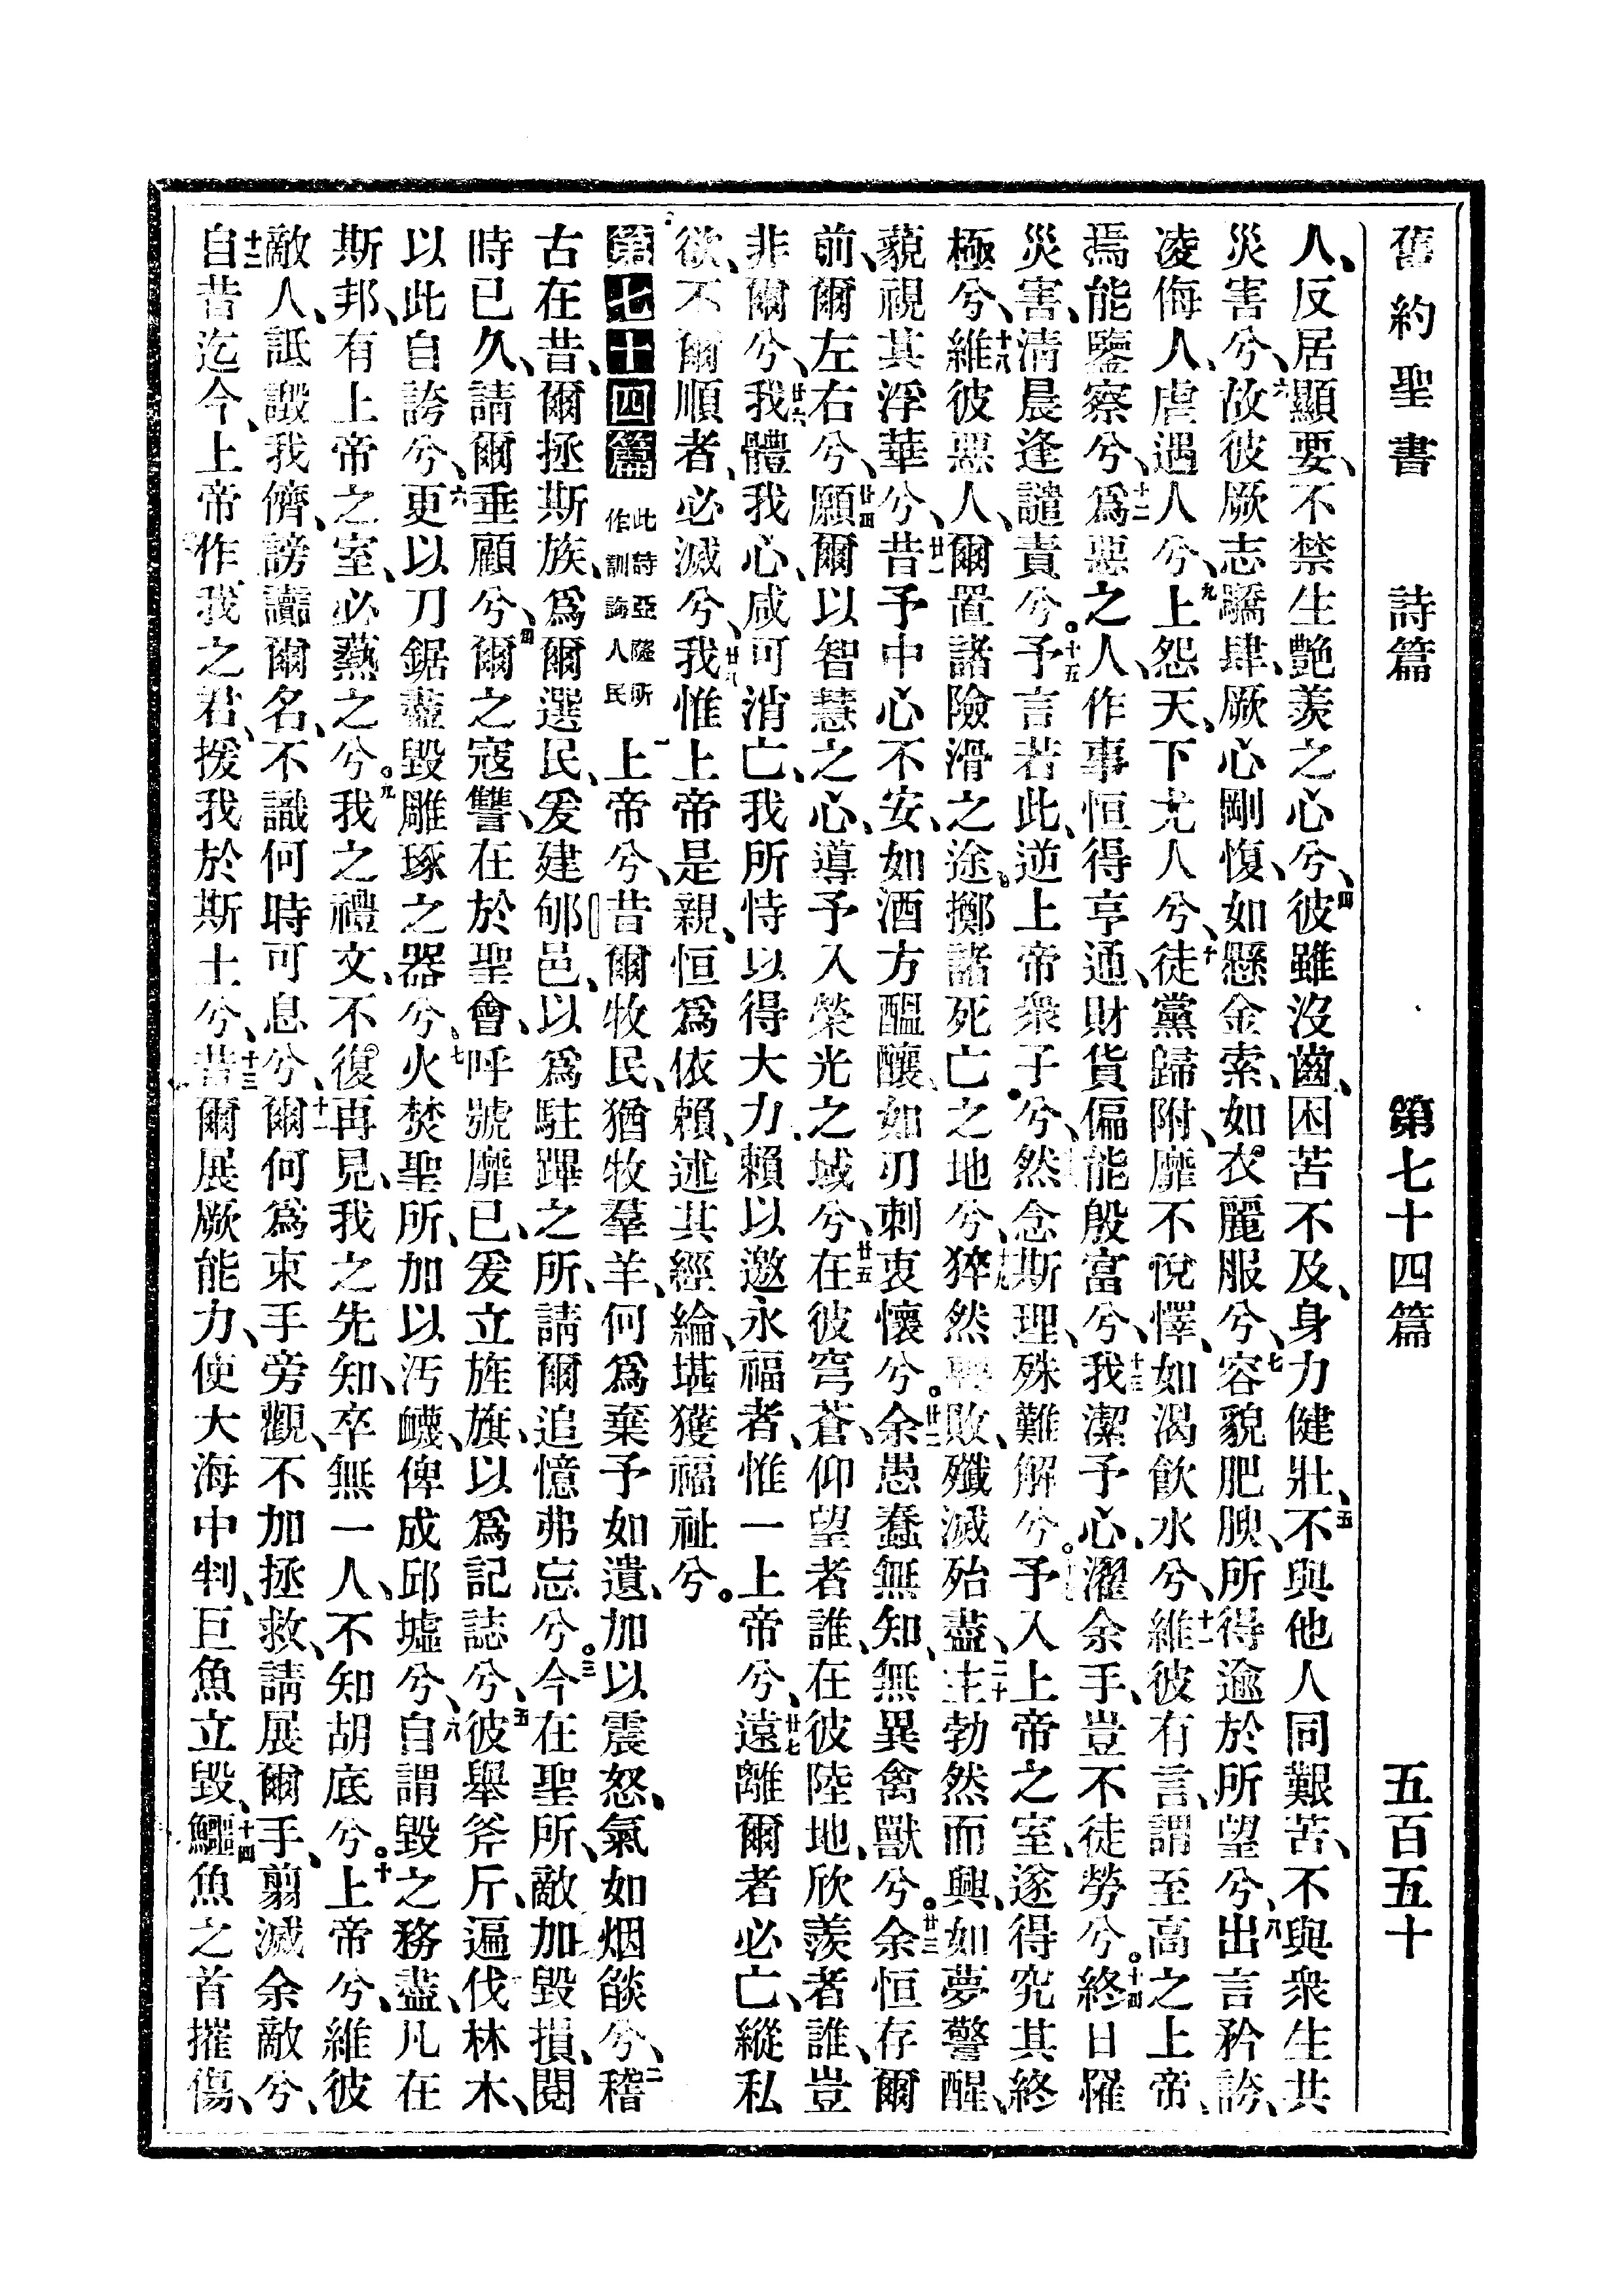 舊約聖書 詩篇 第七十四篇 五百五十
人、反居顯要、不禁生艷羨之心兮、四彼雖沒齒、困苦不及、身力健壯、五不與他人同艱苦、不與衆生共
災害兮、六故彼厥志驕肆、厥心剛愎、如懸金索、如衣麗服兮、七容貌肥腴、所得逾於所望兮、八出言矜誇、
凌侮人、虐遇人兮、九上怨天、下尤人兮、十徒黨歸附、靡不悅懌、如渴飮水兮、十一維彼有言、謂至高之上帝、
焉能鑒察兮、十二爲惡之人、作事恒得亨通、財貨偏能殷富兮、十三我潔予心、濯余手、豈不徒勞兮。十四終日罹
災害、淸晨逢譴責兮。十五予言若此、逆上帝衆子兮、然念斯理、殊難解兮。予入上帝之室、遂得究其終
極兮、十八維彼惡人、爾置諸險滑之途、擲諸死亡之地兮、十九猝然敗、殲滅殆盡、二十主勃然而興、如夢警醒、
藐視其浮華兮、廿一昔予中心不安、如酒方醞釀、如刃刺衷懷兮。廿二余愚蠢無知、無異禽獸兮。廿三余恒存爾
前、爾左右兮、廿四願爾以智慧之心、導予入榮光之域兮、廿五在彼穹蒼、仰望者誰、在彼陸地、欣羨者誰、豈
非爾兮、廿六我體我心、咸可消亡、我所恃以得大力、賴以邀永福者、惟一上帝兮、廿七遠離爾者必亡、縱私
欲、不爾順者、必滅兮、廿八我惟上帝是親、恒爲依賴、述其經綸、堪獲福祉兮。
第七十四篇 此詩亞薩所作訓誨人民 一上帝兮、昔爾牧民、猶牧羣羊、何爲棄予如遺、加以震怒、氣如烟燄兮、二稽
古在昔、爾拯斯族、爲爾選民、爰建郇邑、以爲駐蹕之所、請爾追憶弗忘兮。三今在聖所、敵加毀損、閱
時已久、請爾垂顧兮、四爾之寇讐、在於聖會、呼號靡已、爰立旌旗、以爲記誌兮、五彼舉斧斤、遍伐林木、
以此自誇兮、六更以刀鋸、盡毀雕琢之器兮、七火焚聖所、加以汚衊、俾成邱墟兮、八自謂毀之務盡、凡在
斯邦、有上帝之室、必爇之兮。九我之禮文、不復再見、我之先知、卒無一人、不知胡底兮。十上帝兮、維彼
敵人、詆譭我儕、謗讟爾名、不識何時可息兮、十一爾何爲束手旁觀、不加拯救、請展爾手、翦滅余敵兮、
十二自昔迄今、上帝作我之君、援我於斯土兮、十三昔爾展厥能力、使大海中判、巨魚立毀、十四鱷魚之首摧傷、